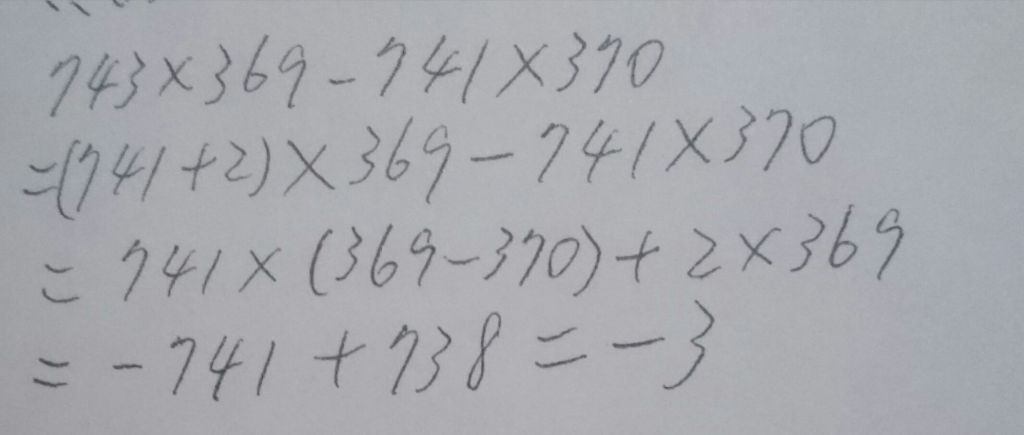 743×369-741×370
=(741+2)×369-741×370
=741×(369-370)+2×369
=-741+738=-3